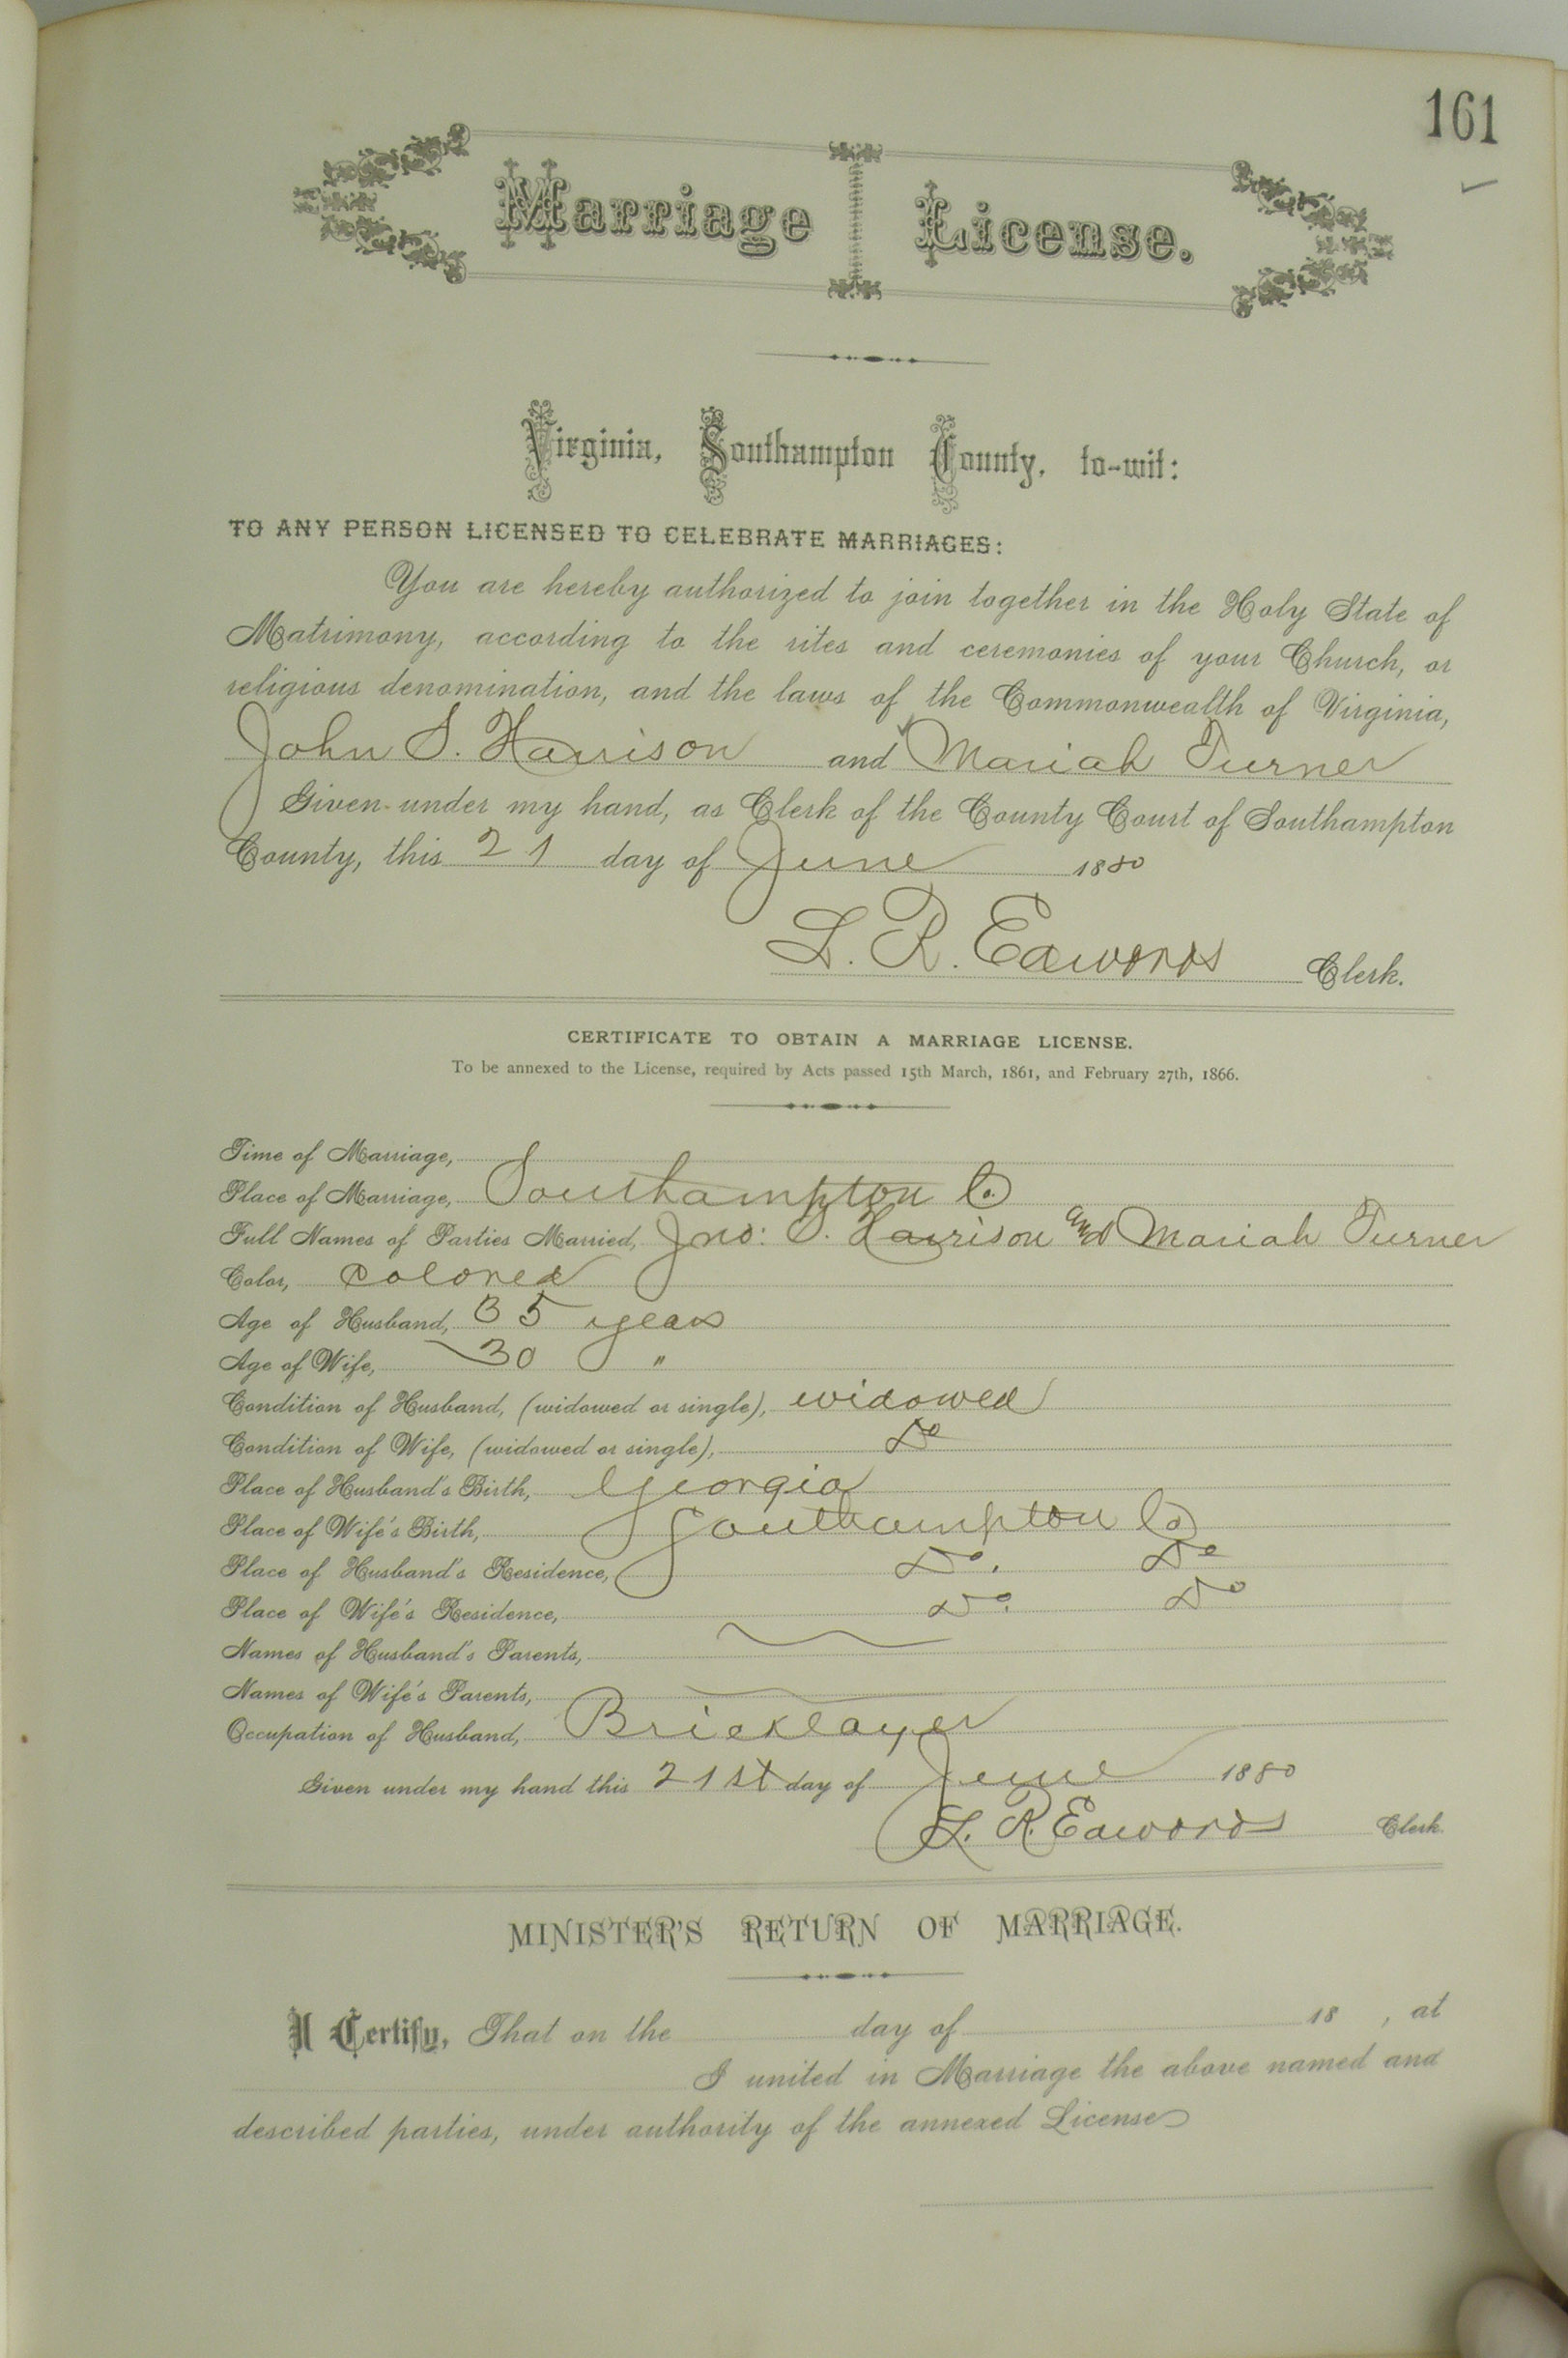 161
Marriage License.
Virginia, Southampton County, to-wit:
TO ANY PERSON LICENSED TO CELEBRATE MARRIAGES:
You are hereby authorized to join together in the Holy State of
Matrimony, according to the rites and ceremonies of your Church, or
religious denomination, and the laws of the Commonwealth of Virginia,
John S. Harrison and Mariah Turner
Given under my hand, as Clerk of the County Court of Southampton
County, this 21 day of June 1880
L. R. Edwards Clerk.
CERTIFICATE TO OBTAIN A MARRIAGE LICENSE.
To be annexed to the License, required by Acts passed 15th March, 1861, and February 27th, 1866.
Time of Marriage,
Place of Marriage, Southampton Co.
Full Names of Parties Married, Jno: S. Harrison and Mariah Turner
Color, Colored
Age of Husband, 35 years
Age of Wife, 30 "
Condition of Husband, (widowed or single), widowed
Condition of Wife, (widowed or single), Do
Place of Husband's Birth, Georgia
Place of Wife's Birth, Southampton Co
Place of Husband's Residence, Do. Do
Place of Wife's Residence, Do. Do
Names of Husband's Parents,
Names of Wife's Parents,
Occupation of Husband, Bricklayer
Given under my hand this 21st day of June 1880
L. R. Edwards Clerk.
MINISTER'S RETURN OF MARRIAGE.
I Certify, That on the day of 18 , at
I united in Marriage the above named and
described parties, under authority of the annexed License